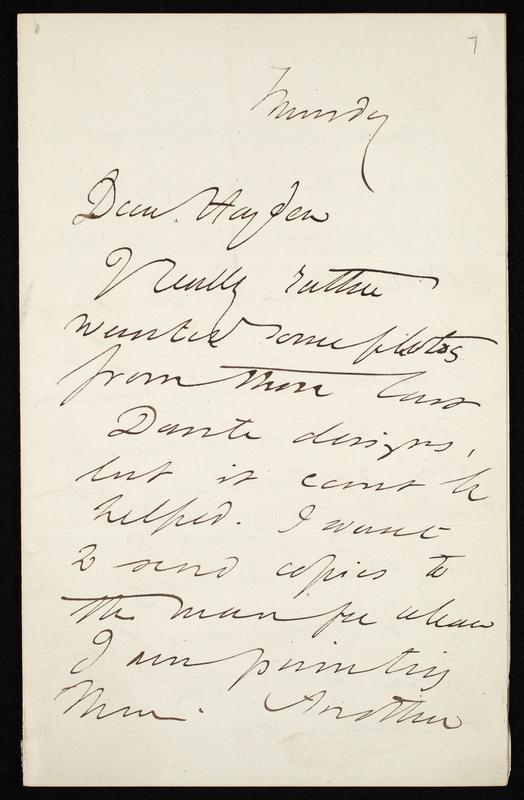 7
Thursday
Dear Haydon
I really rather
wanted some photos
from those last
Dante designs,
but it cannot be
helped. I want
2 send copies to
the man for whom
I am painting
them. Another